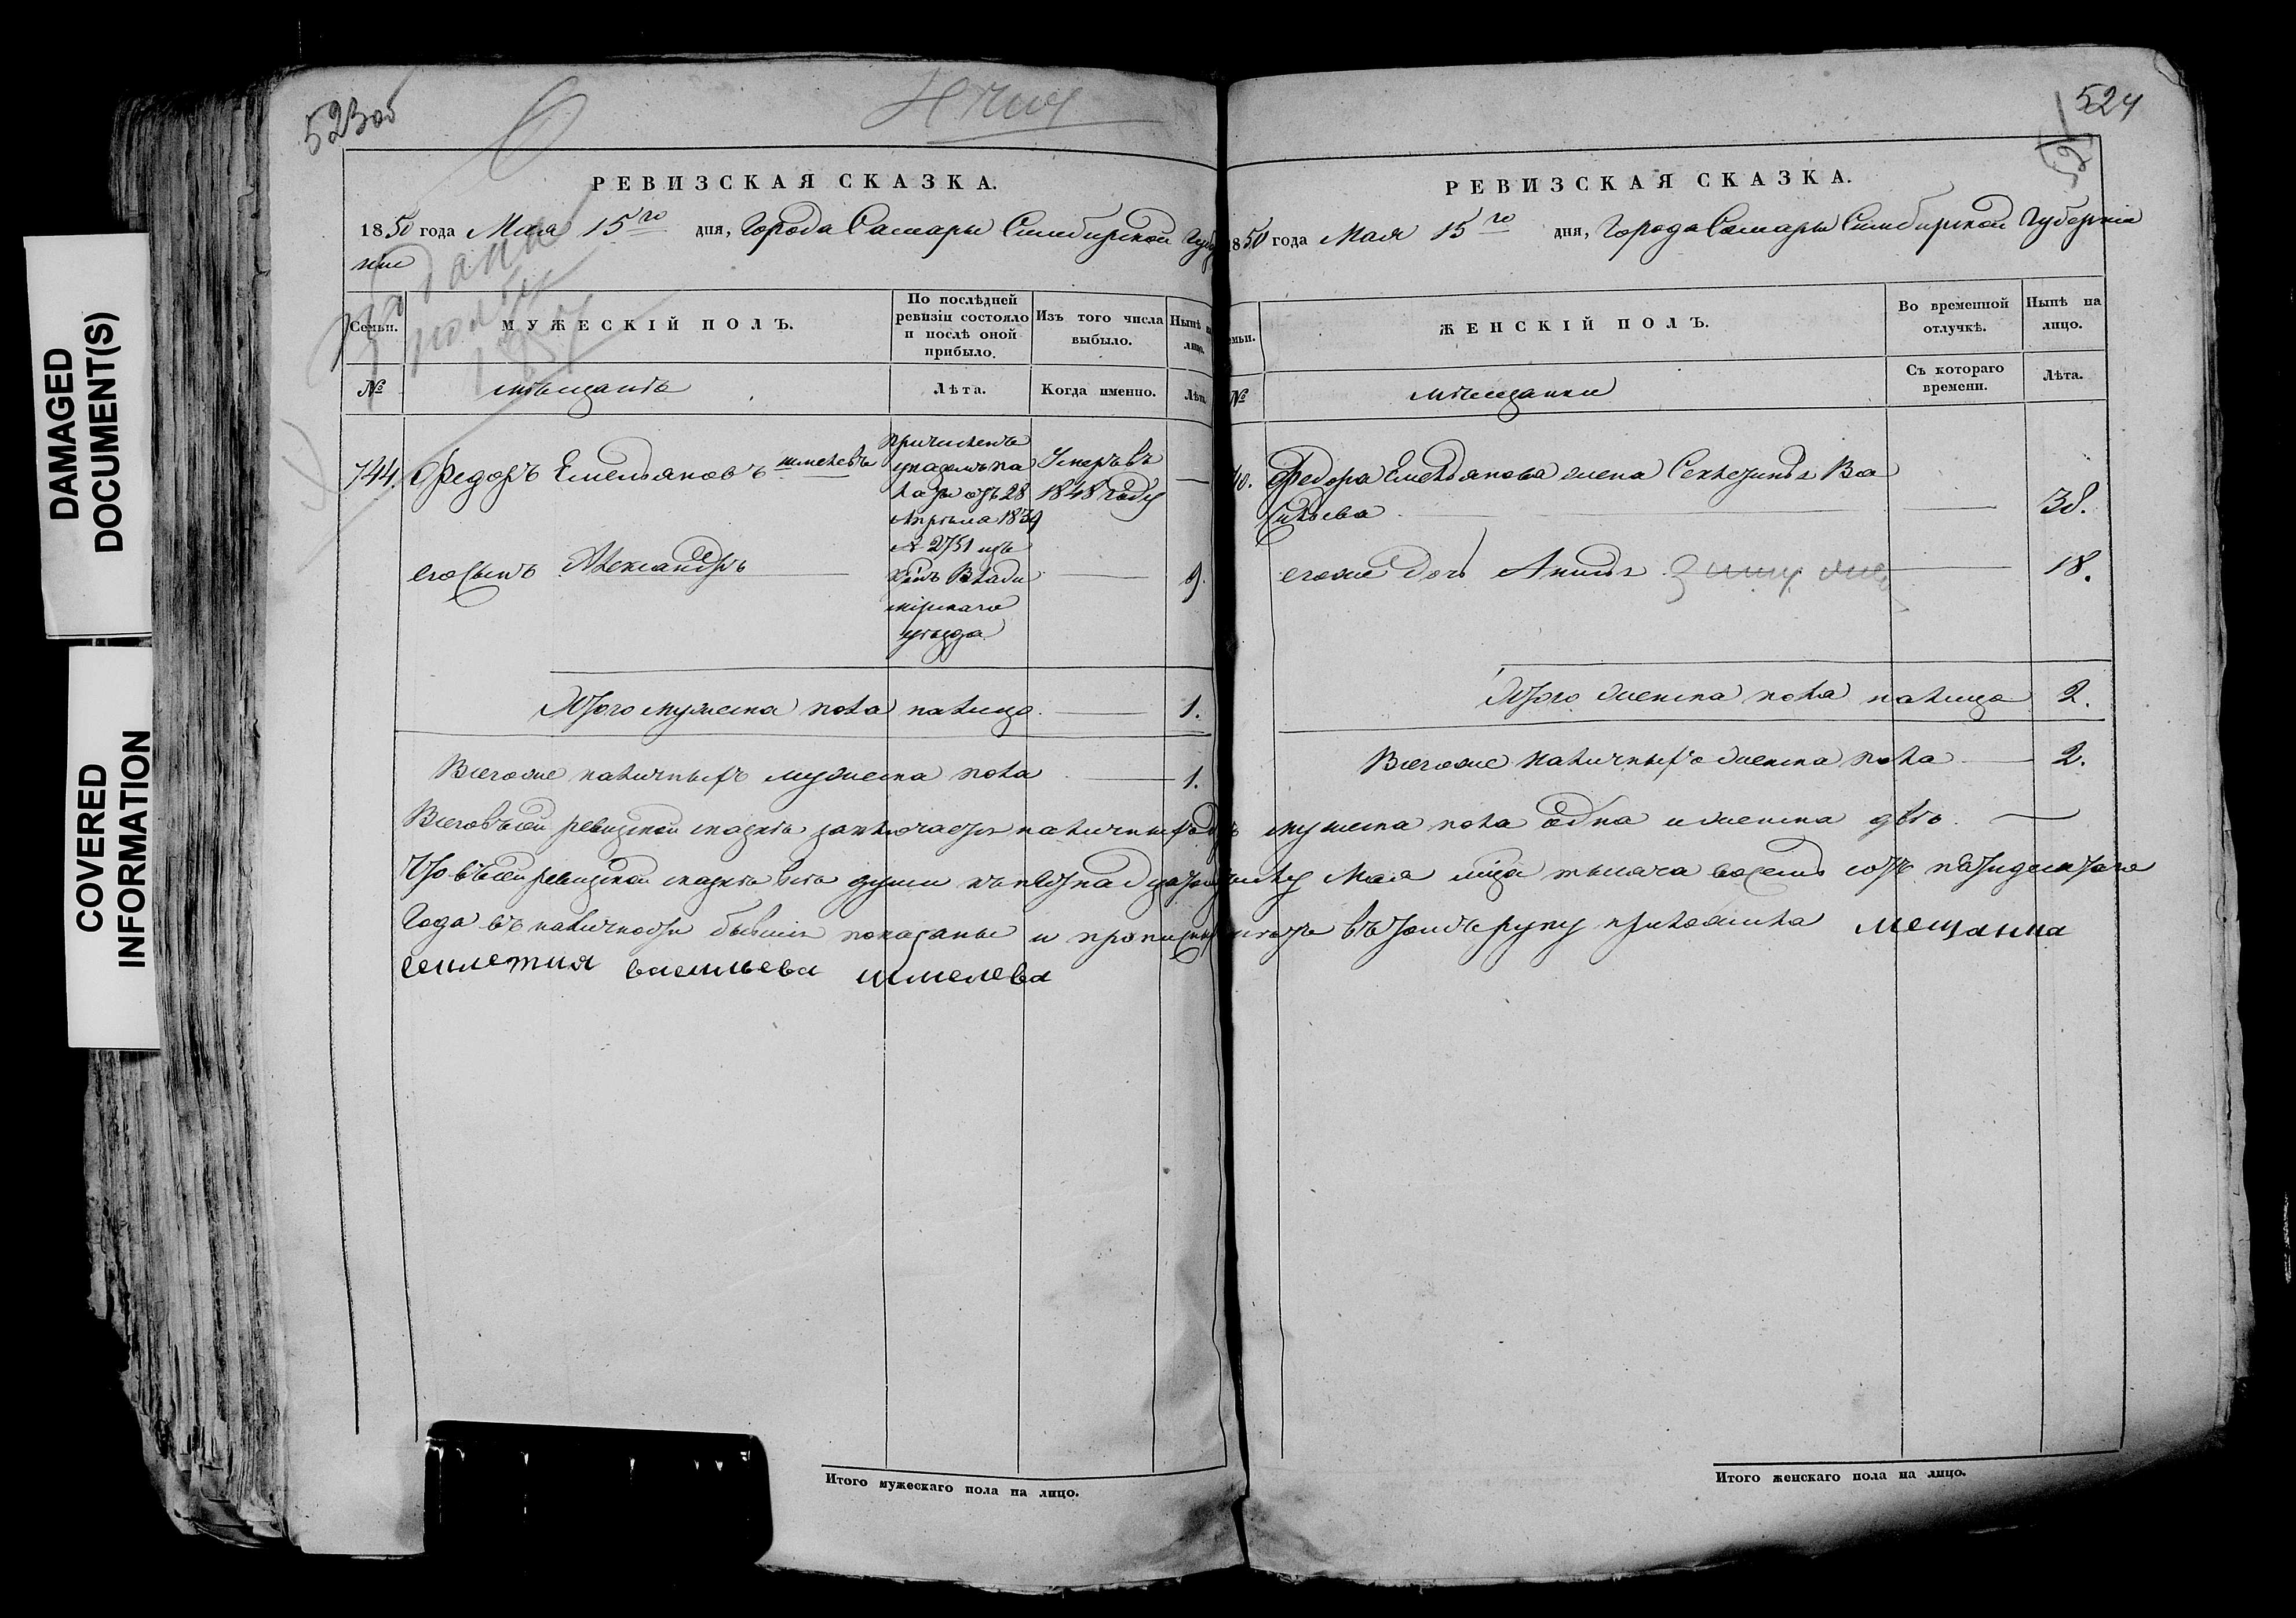 DAMAGED
DOCUMENT(S)
COVERED
INFORMATION
523 об
РЕВИЗСКАЯ СКАЗКА.
1850 года Мая 15го дня, Города Самары Симбирской Губер
нии
Семьи.
МУЖЕСКІЙ ПОЛЪ.
По послѣдней
ревизіи состояло
и послѣ оной
прибыло.
Изъ того числа
выбыло.
Нынѣ на
лицо.
№
мѣщанѣ
Лѣта.
Когда именно.
Лѣта
744
Федоръ Емельяновъ шмелевъ
причисленъ
указомъ па
латы отъ 28
Апрѣля 1839
№ 2751 изъ
Влади
мірскаго
уѣзда
Умеръ въ
1848 году
его сынъ Александръ
9.
Итого мужеска пола на лицо 1.
Всего же наличныхъ мужеска пола 1.
Всего въ сей ревизской сказкѣ заключается наличныхъ
Что въ сей ревизской сказкѣ всѣ души къ пятнадцатому
Года въ наличности бывшия показаны и
семлетия васильева шмелева
524
РЕВИЗСКАЯ СКАЗКА.
1850 года Мая 15го дня, Города Самары Симбирской Губерніи
Семьи.
ЖЕНСКІЙ ПОЛЪ.
Во временной
отлучкѣ.
Нынѣ на
лицо.
№
мѣщанки
Съ котораго
времени.
Лѣта.
Федора Емельянова жена Васильева
38.
его же дочь 18.
Итого женска пола на лицо 2.
Всего же наличныхъ женска пола 2.
мужеска пола одна и женска двѣ
числу Мая мца тысяча восемь сотъ пятидесятаго
въ томъ руку приложила мещанка
Итого мужескаго пола на лицо.
Итого женскаго пола на лицо.